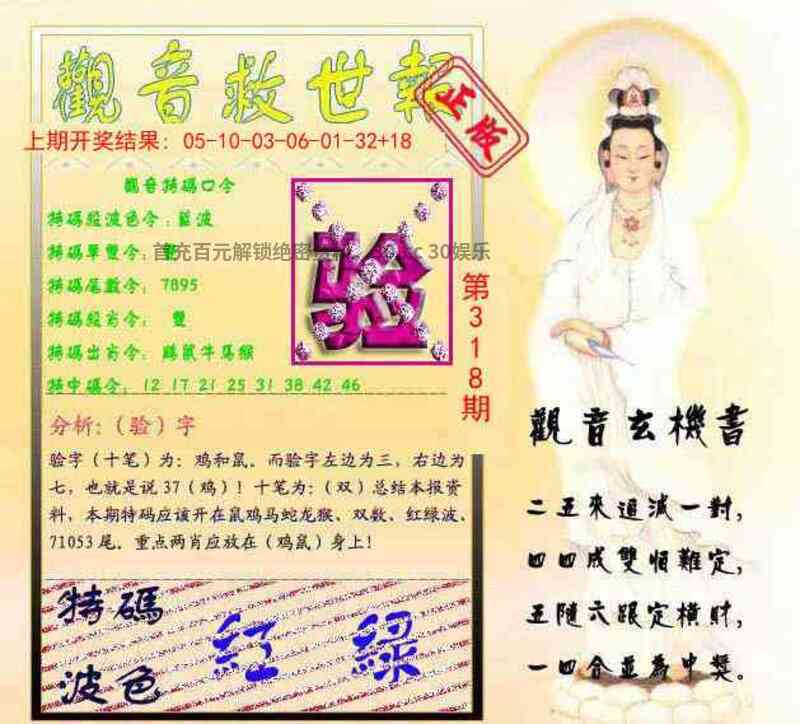 觀音救世報
正版
上期开奖结果：05-10-03-06-01-32+18
觀音特碼口令
特碼段波色令：藍波
特碼單雙令：雙
首充百元解锁绝密
30娱乐
特碼尾數令：7895
特碼段肖令：雙
特碼出肖令：鷄鼠牛馬猴
特中碼令：12 17 21 25 31 38 42 46
验
第318期
分析：（验）字
验字（十笔）为：鸡和鼠。而验字左边为三，右边为
七，也就是说37（鸡）！十笔为：（双）总结本报资
料，本期特码应该开在鼠鸡马蛇龙猴、双数、红绿波、
71053尾。重点两肖应放在（鸡鼠）身上！
特碼
波色
紅 綠
觀音玄機書
二五來追減一對，
四四成雙恒難定，
五隨六跟定橫財，
一四合並為中獎。